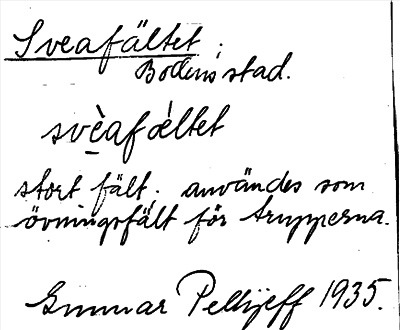 Sveafältet :
Bodens stad.
svèaféltet
stort fält; användes som
övningsfält för trupperna.
Gunnar Pellijeff 1935.